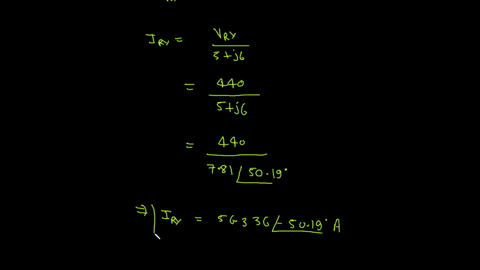 I_RY = V_RY / 5+j6
= 440 / 5+j6
= 440 / 7.81 ∠50.19°
⇒ I_RY = 56336 ∠-50.19° A